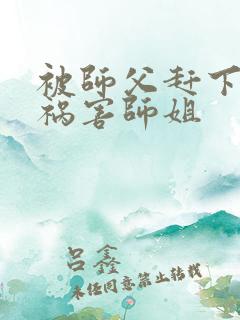 被師父赶下
祸害師姐
吕鑫
未经同意禁止转载